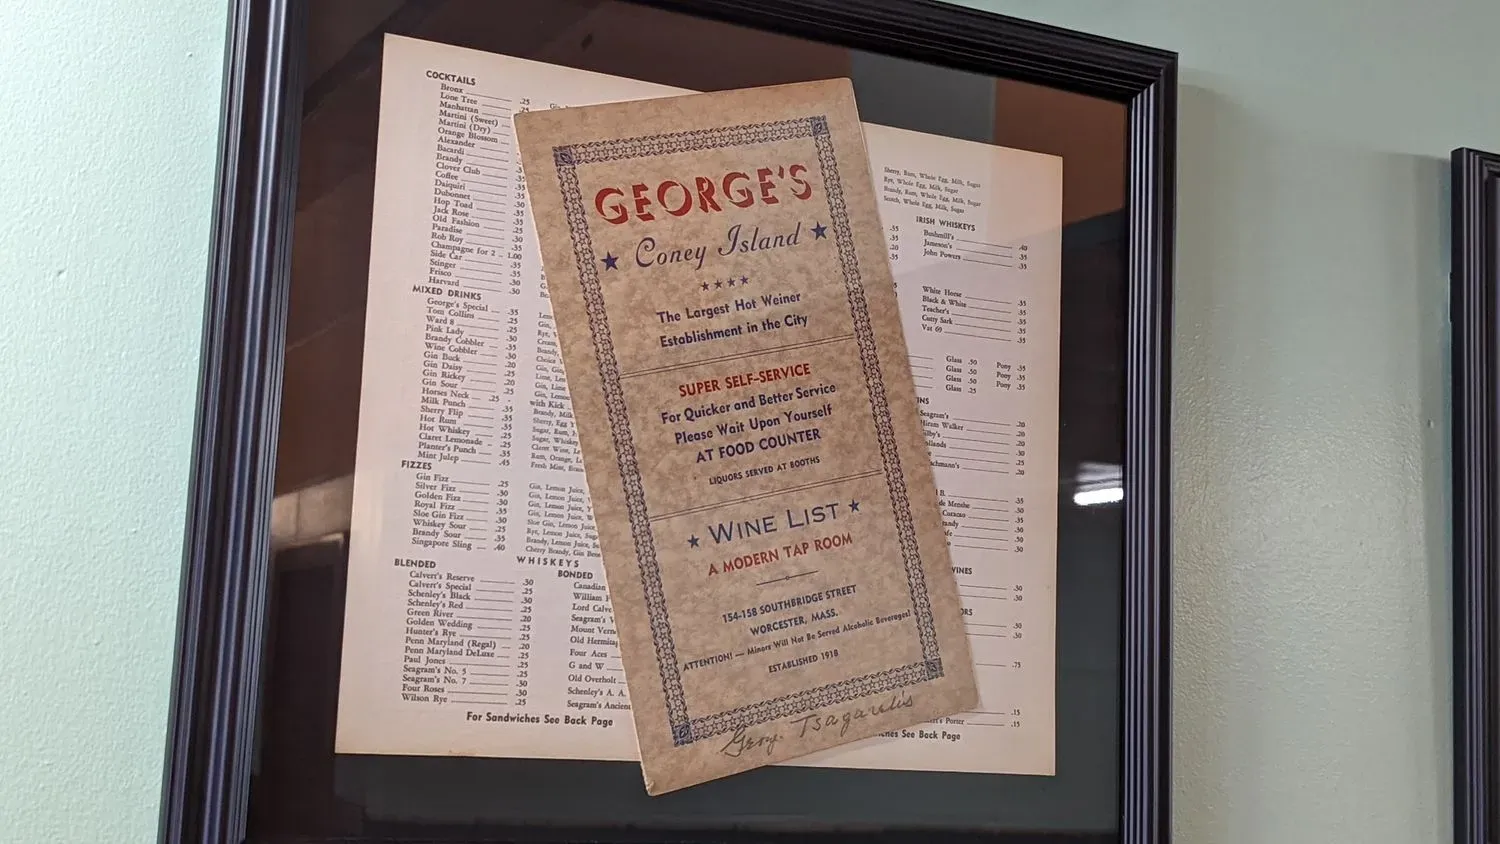 COCKTAILS
Bronx .25
Lone Tree .25
Manhattan
Martini (Sweet)
Martini (Dry)
Orange Blossom
Alexander
Bacardi
Brandy
Clover Club
Coffee
Daiquiri
Dubonnet .30
Hop Toad .35
Jack Rose .35
Old Fashion .35
Paradise .35
Rob Roy .30
Champagne for 2 .. 1.00
Side Car .35
Stinger .35
Frisco .30
Harvard .30
MIXED DRINKS
George's Special .35
Tom Collins .25
Ward 8 .25
Pink Lady .30
Brandy Cobbler .35
Wine Cobbler .30
Gin Buck .20
Gin Daisy .25
Gin Rickey .20
Gin Sour .25
Horses Neck .25
with Kick
Milk Punch .35
Sherry Flip .35
Hot Rum .35
Hot Whiskey .25
Claret Lemonade .25
Planter's Punch .35
Mint Julep .45
FIZZES
Gin Fizz .25
Silver Fizz .30
Golden Fizz .30
Royal Fizz .35
Sloe Gin Fizz .30
Whiskey Sour .25
Brandy Sour .35
Singapore Sling .40
Gin, Lemon Juice,
Gin, Lemon Juice,
Gin, Lemon Juice,
Gin, Lemon Juice,
Sloe Gin, Lemon Juice,
Rye, Lemon Juice,
Brandy, Lemon Juice,
Cherry Brandy, Gin
WHISKEYS
BLENDED
Calvert's Reserve .30
Calvert's Special .25
Schenley's Black .30
Schenley's Red .25
Green River .20
Golden Wedding .25
Hunter's Rye .25
Penn Maryland (Regal) .20
Penn Maryland DeLuxe .25
Paul Jones .25
Seagram's No. 5 .25
Seagram's No. 7 .30
Four Roses .30
Wilson Rye .25
BONDED
Canadian
William
Lord Calve
Seagram's
Mount Vern
Old Hermita
Four Aces
G and W
Old Overholt
Schenley's A. A.
Seagram's Ancien
For Sandwiches See Back Page
GEORGE'S
Coney Island
The Largest Hot Weiner
Establishment in the City
SUPER SELF-SERVICE
For Quicker and Better Service
Please Wait Upon Yourself
AT FOOD COUNTER
LIQUORS SERVED AT BOOTHS
WINE LIST
A MODERN TAP ROOM
154-158 SOUTHBRIDGE STREET
WORCESTER, MASS.
ATTENTION! — Minors Will Not Be Served Alcoholic Beverages!
ESTABLISHED 1918
Tsagarelis
Sherry, Rum, Whole Egg, Milk, Sugar
Rye, Whole Egg, Milk, Sugar
Brandy, Rum, Whole Egg, Milk, Sugar
Scotch, Whole Egg, Milk, Sugar
IRISH WHISKEYS
Bushmill's .40
Jameson's .35
John Powers .35
White Horse .35
Black & White .35
Teacher's .35
Cutty Sark .35
Vat 69 .35
Glass .50 Pony .35
Glass .50 Pony .35
Glass .50 Pony .35
Glass .25 Pony .35
Seagram's .20
Hiram Walker .20
.20
.30
.25
.20
.35
de Menthe .30
Curacao .35
.30
.30
.30
WINES
.30
.30
.50
.30
.75
.15
Porter .15
See Back Page